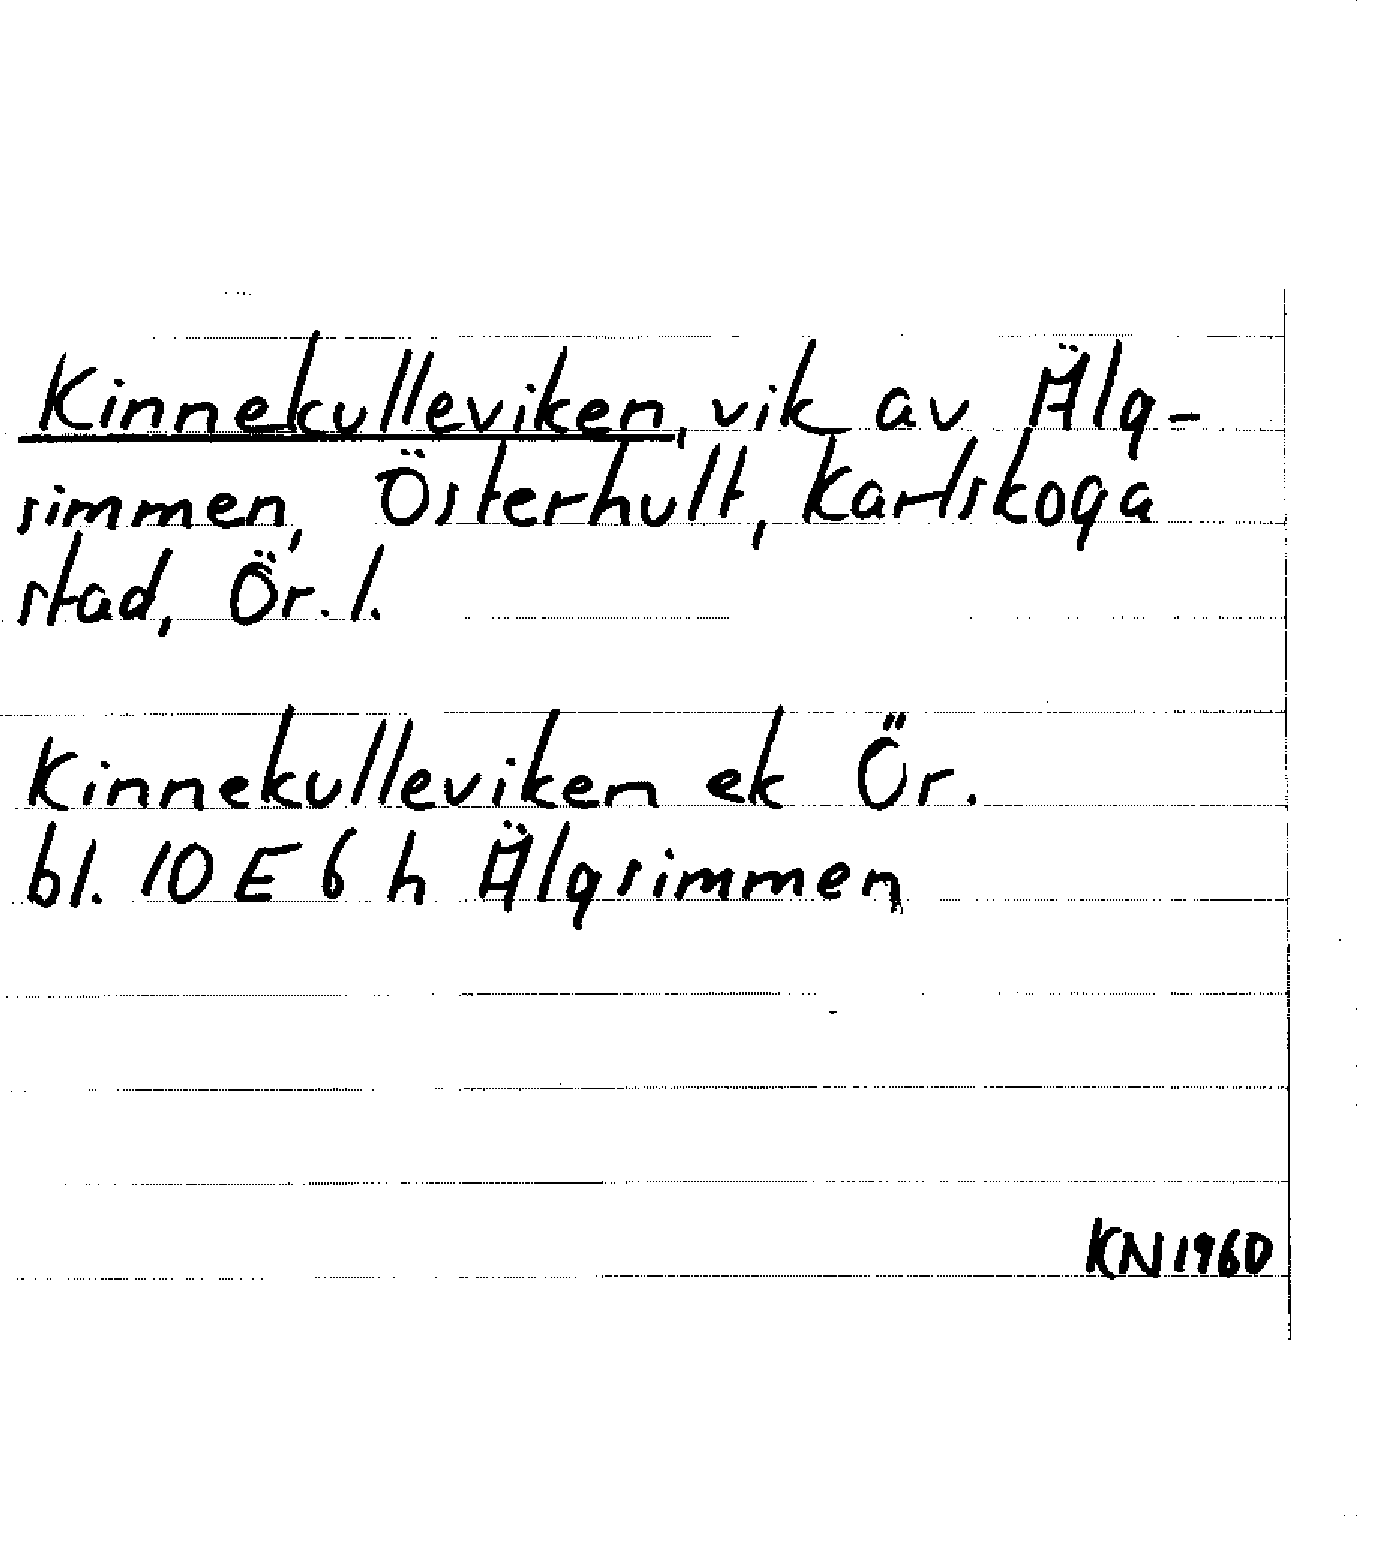 Kinnekulleviken, vik av Älg-
simmen, Österhult, Karlskoga
stad, Ör. l.
Kinnekulleviken ek Ör.
bl. 10 E 6 h Älgsimmen
KN 1960